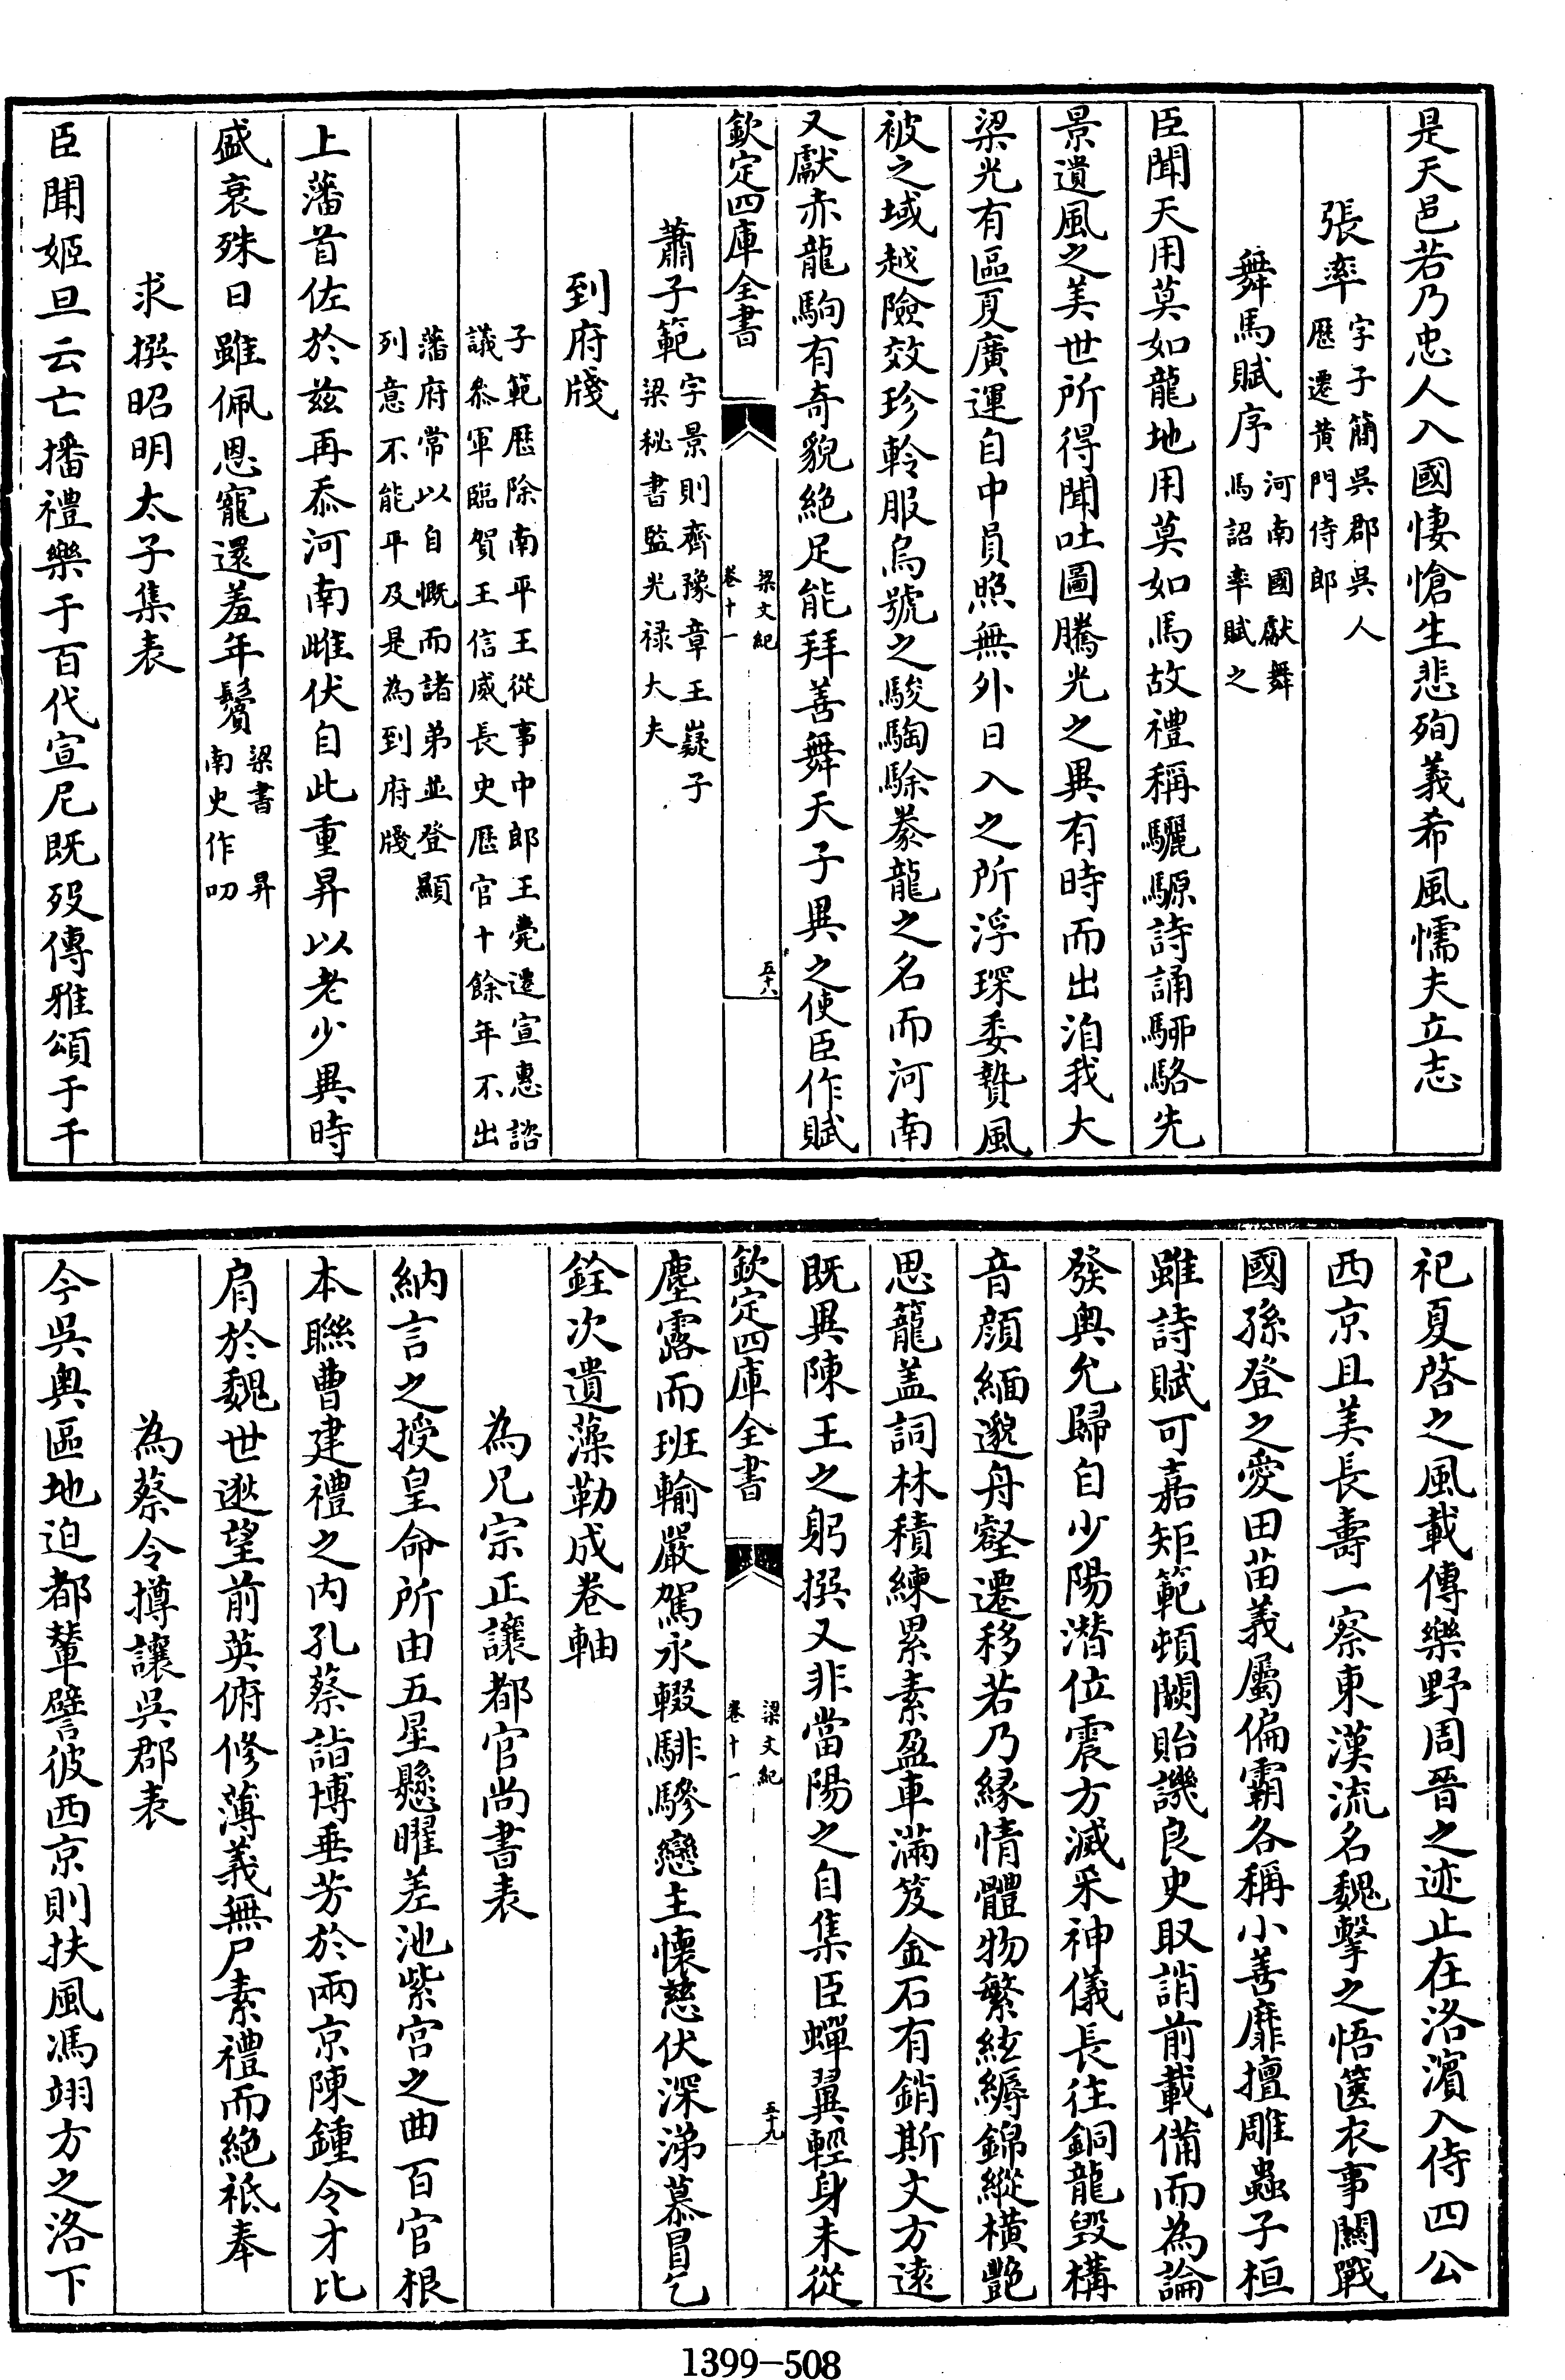 是天邑若乃忠人入國悽愴生悲殉義希風懦夫立志
張率字子簡吳郡吳人歷遷黃門侍郎
舞馬賦序河南國獻舞馬詔率賦之
臣聞天用莫如龍地用莫如馬故禮稱驪騵詩誦駵駱先
景遺風之美世所得聞吐圖騰光之異有時而出洎我大
梁光有區夏廣運自中員照無外日入之所浮琛委贄風
被之域越險效珍軨服烏號之駿騊駼豢龍之名而河南
又獻赤龍駒有奇貌絕足能拜善舞天子異之使臣作賦
欽定四庫全書
梁文紀
卷十一
五十八
蕭子範字景則齊豫章王嶷子梁秘書監光禄大夫
到府牋
子範歷除南平王從事中郎王薨遷宣惠諮議叅軍臨賀王信威長史歷官十餘年不出
藩府常以自慨而諸弟並登顯列意不能平及是為到府牋
上藩首佐於兹再忝河南雌伏自此重昇以老少異時
盛衰殊日雖佩恩寵還羞年鬢梁書昇南史作叨
求撰昭明太子集表
臣聞姬旦云亡播禮樂于百代宣尼既歿傳雅頌于千
祀夏啓之風載傳樂野周晉之迹止在洛濱入侍四公
西京且美長壽一察東漢流名魏擊之悟篋衣事闗戰
國孫登之愛田苗義屬偏霸各稱小善靡擅雕蟲子桓
雖詩賦可嘉矩範頓闕貽譏良史取誚前載備而為論
發奥允歸自少陽潛位震方滅采神儀長往銅龍毁構
音顔緬邈舟壑遷移若乃縁情體物繁絃縟錦縱横艶
思籠盖詞林積練累素盈車滿笈金石有銷斯文方遠
既異陳王之躬撰又非當陽之自集臣蟬翼輕身未從
欽定四庫全書
梁文紀
卷十一
五十九
塵露而班輸嚴駕永輟騑驂戀主懷慈伏深涕慕冒乞
銓次遺藻勒成卷軸
為兄宗正讓都官尚書表
納言之授皇命所由五星懸曜差池紫宫之曲百官根
本聯曹建禮之内孔蔡詣博垂芳於兩京陳鍾令才比
肩於魏世逖望前英俯修薄義無尸素禮而絕祗奉
為蔡令撙讓吳郡表
今吳奥區地迫都輦譬彼西京則扶風馮翊方之洛下
1399-508